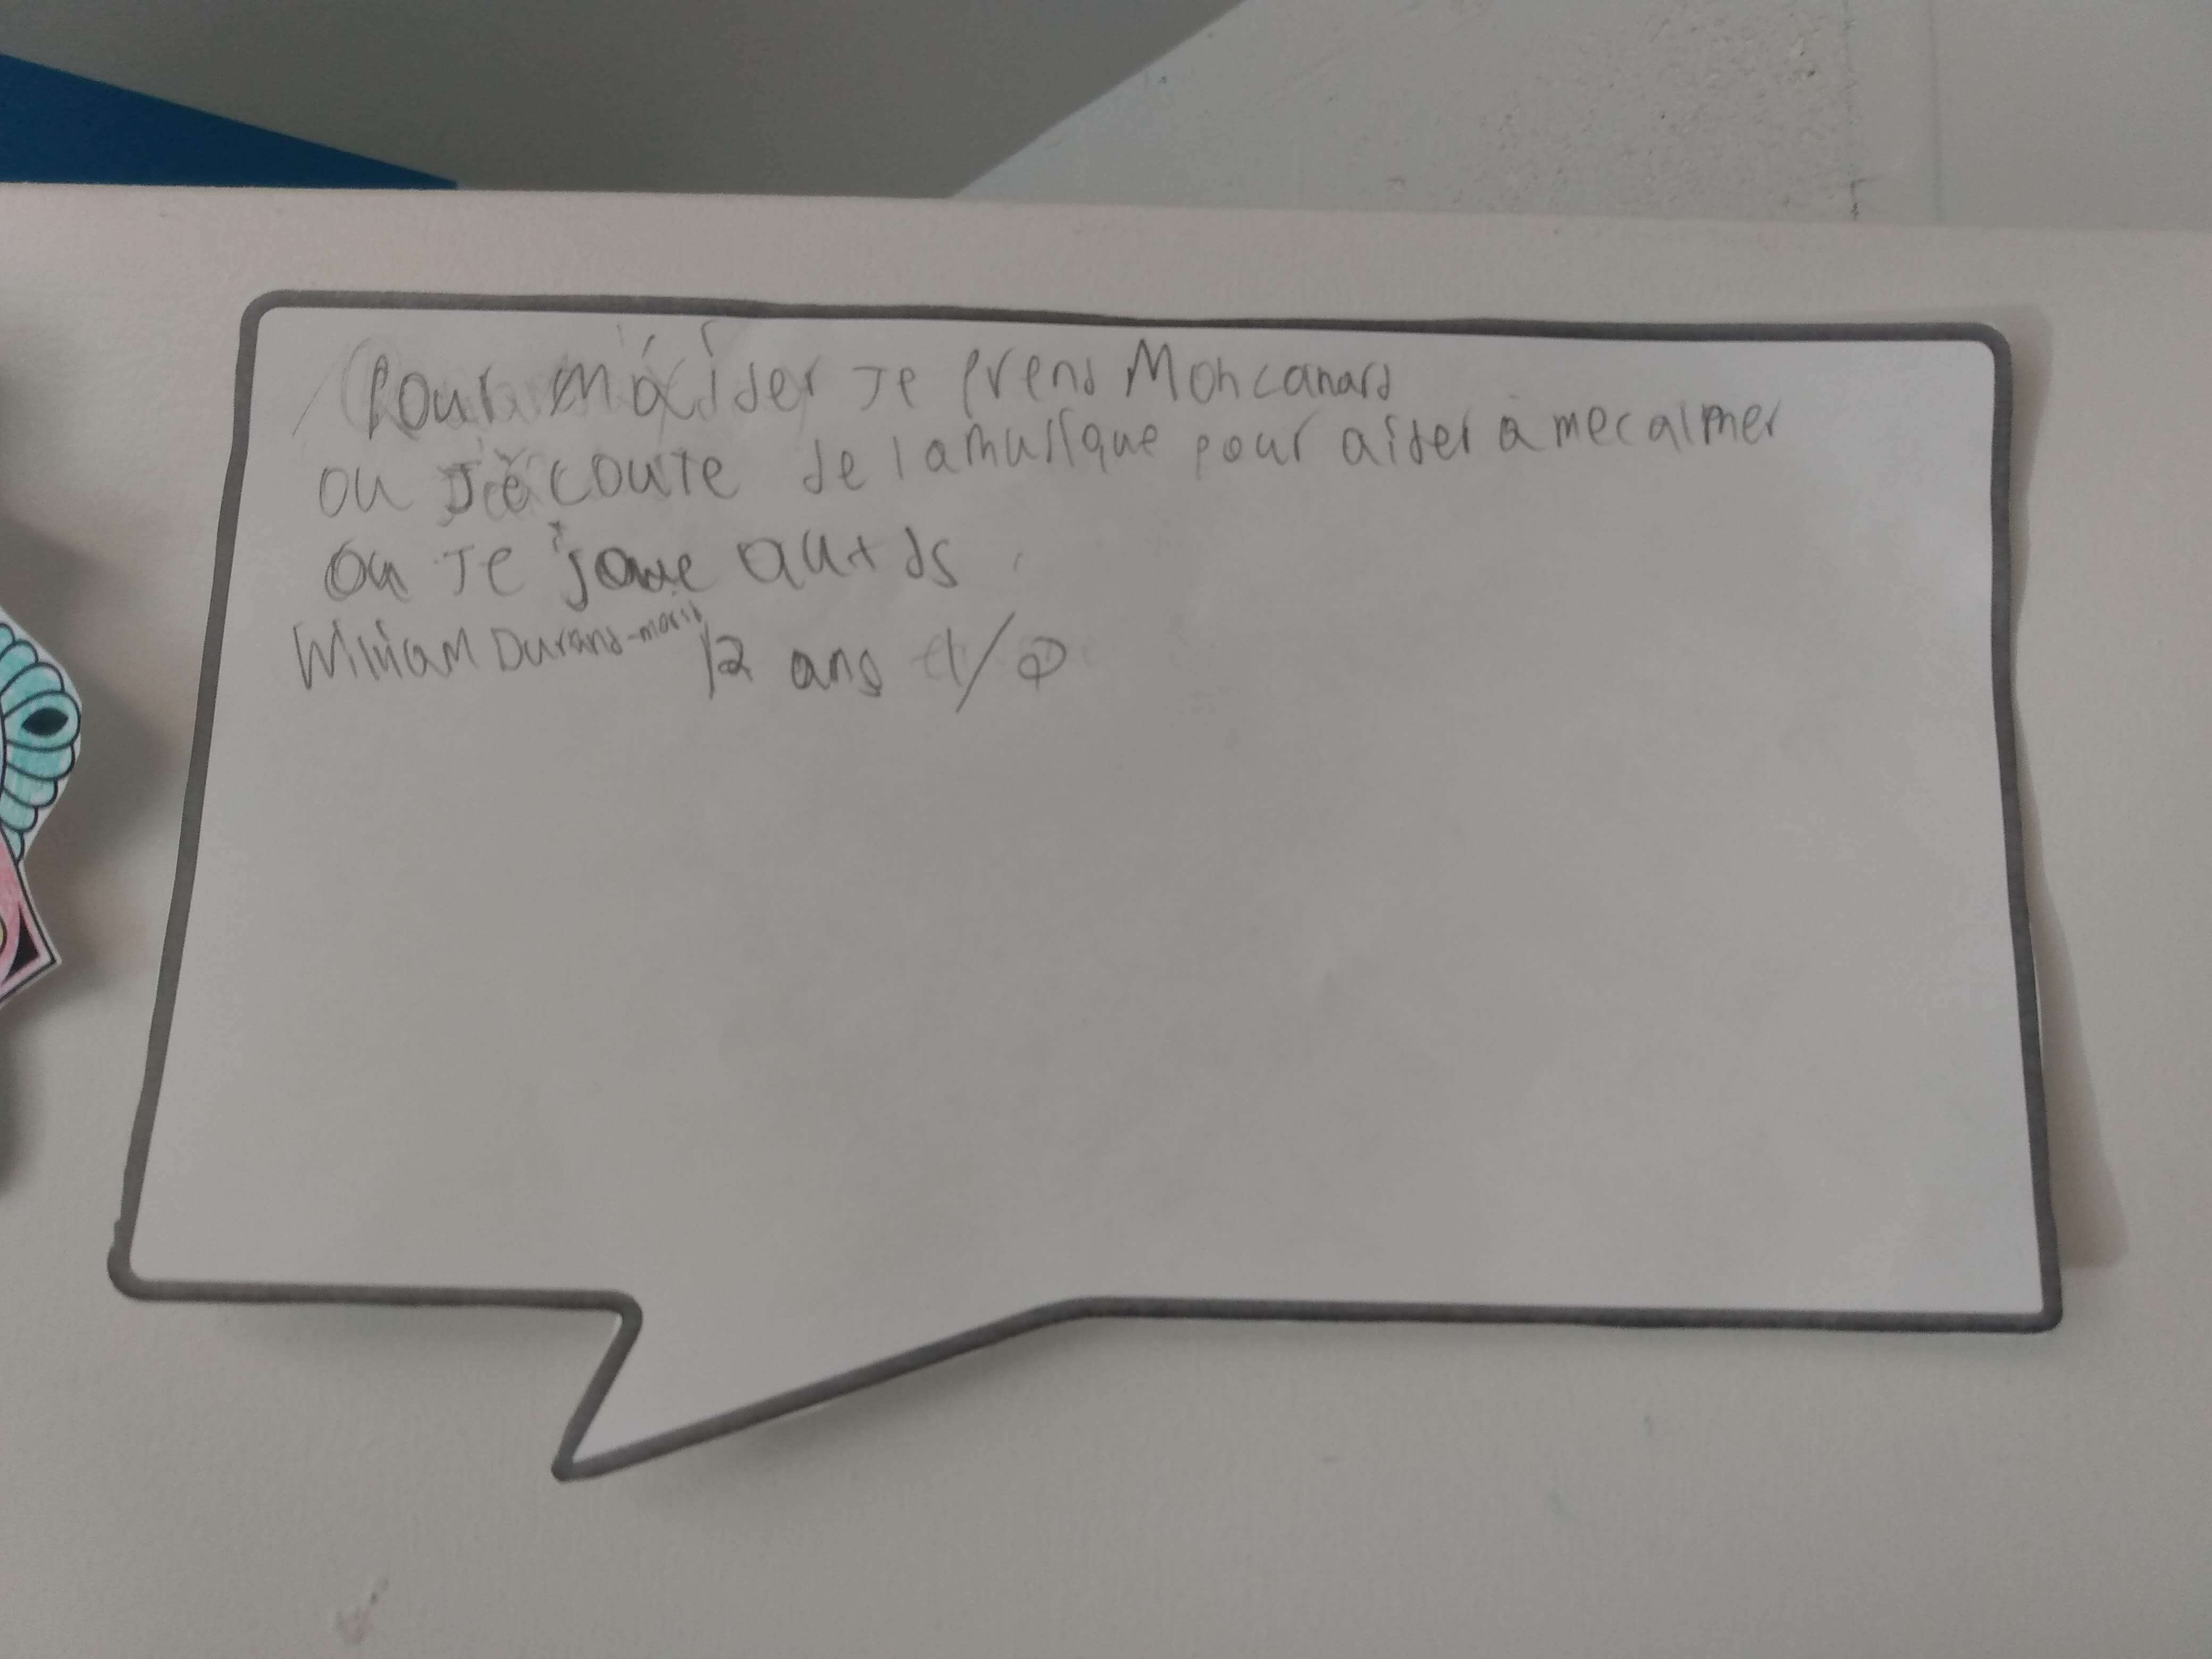 Pour m'aider Je prend Mon canard
ou J'écoute de la musique pour aider à me calmer
ou Je joue au + ds
William Durand-
12 ans